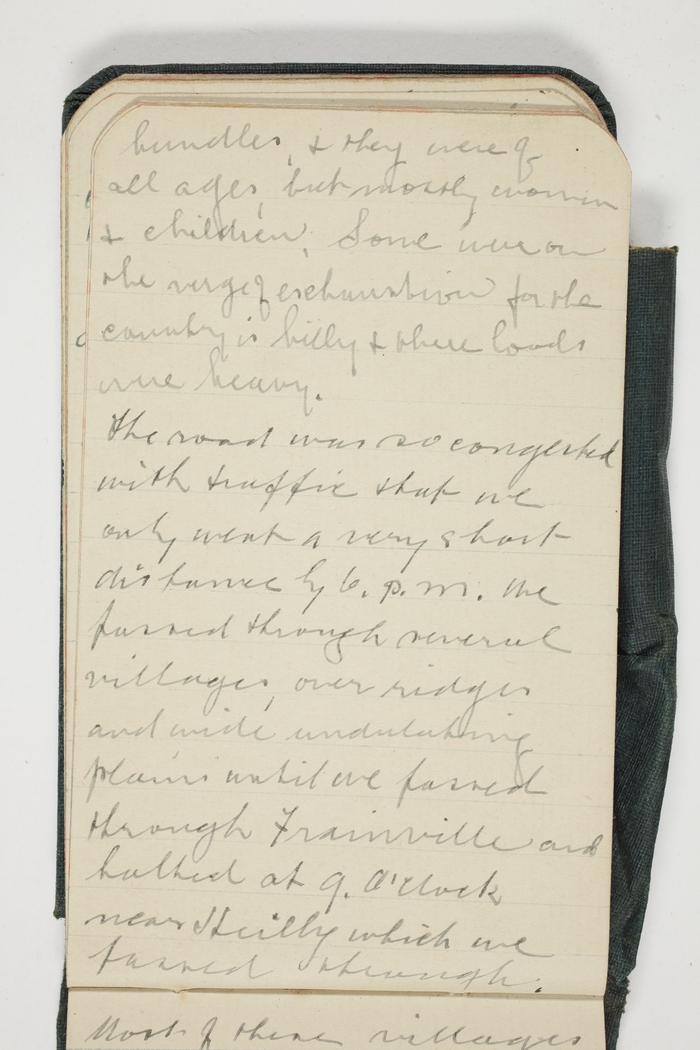 bundles, & they were of
all ages, but mostly women
& children. Some were on
the verge of exhaustion for the
country is hilly & there loads
were heavy.
The road was so congested
with traffic that we
only went a very short
distance by 6. p.m. We
passed through several
villages, over ridges
and wide undulating
plains until we passed
through Frainville and
halted at 9. O'clock
near Heilly which we
passed through.
Most of these villages